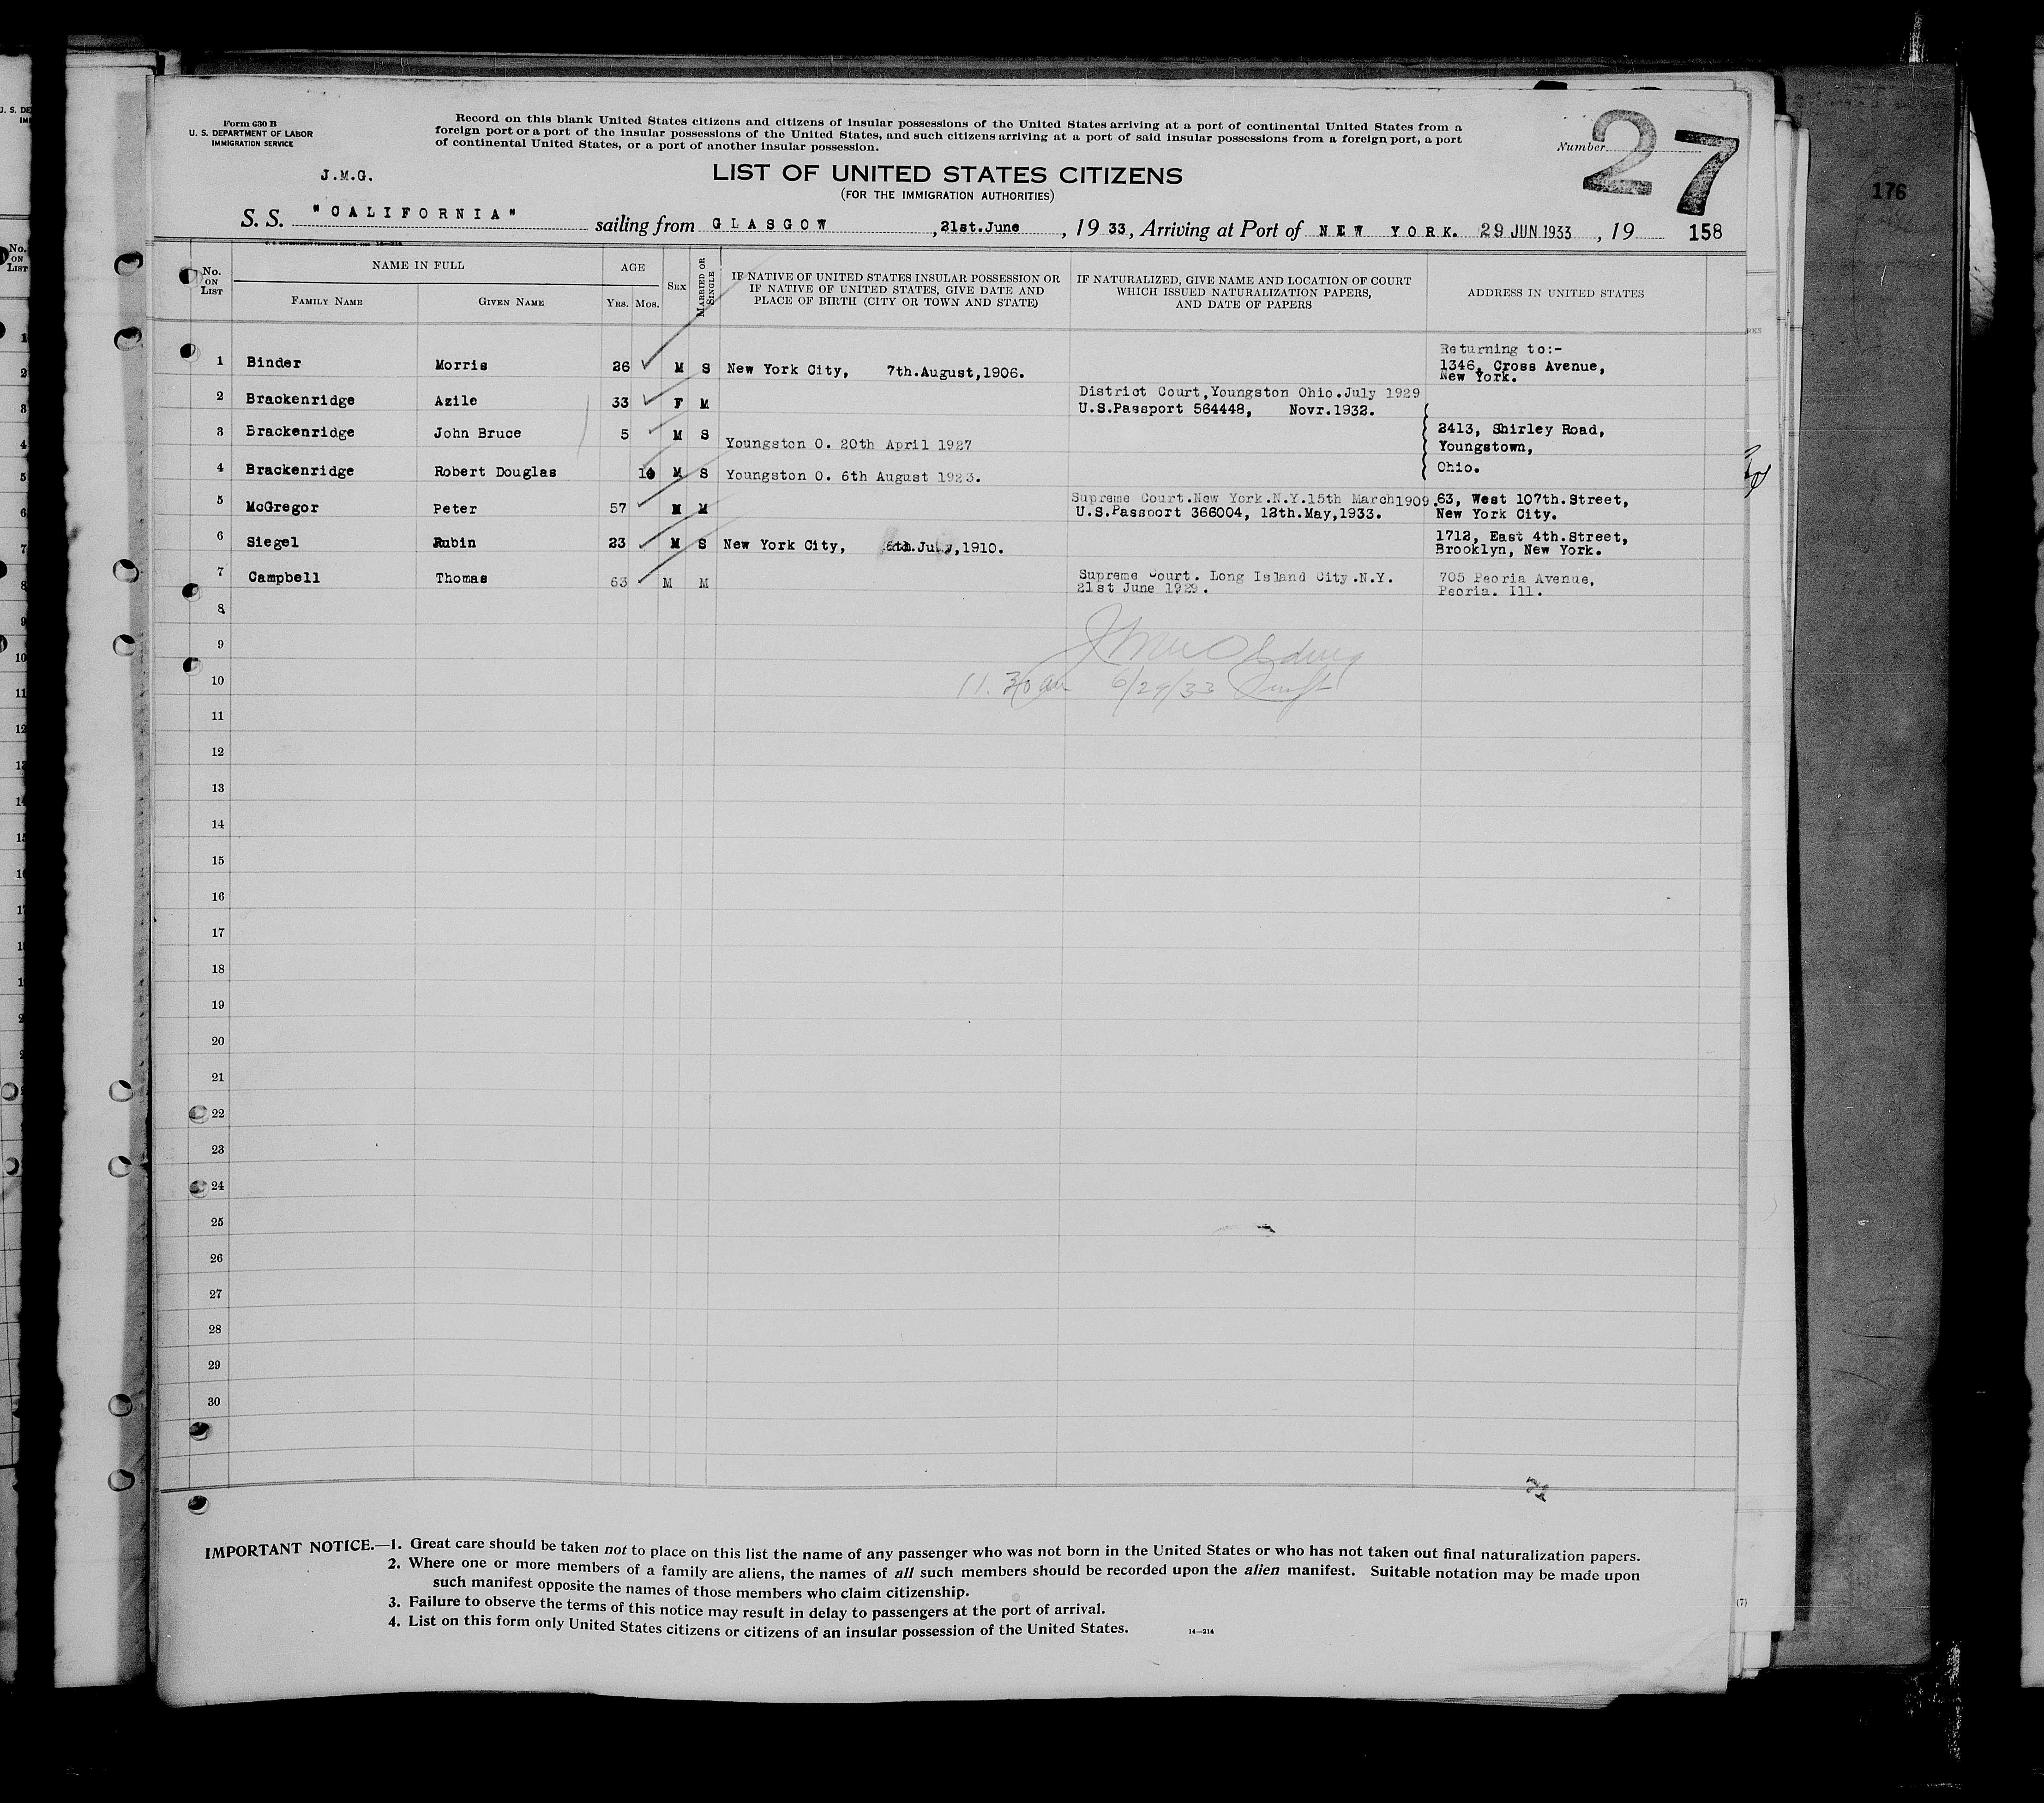 Form 630 B
U. S. DEPARTMENT OF LABOR
IMMIGRATION SERVICE
Record on this blank United States citizens and citizens of insular possessions of the United States arriving at a port of continental United States from a
foreign port or a port of the insular possessions of the United States, and such citizens arriving at a port of said insular possessions from a foreign port, a port
of continental United States, or a port of another insular possession.
Number
27
176
J.M.G.
LIST OF UNITED STATES CITIZENS
(FOR THE IMMIGRATION AUTHORITIES)
S. S. "CALIFORNIA" sailing from GLASGOW, 21st.June, 1933, Arriving at Port of NEW YORK. 29 JUN 1933, 19 158
No. ON LIST
NAME IN FULL
FAMILY NAME
GIVEN NAME
AGE
YRS. MOS.
SEX
MARRIED OR SINGLE
IF NATIVE OF UNITED STATES INSULAR POSSESSION OR
IF NATIVE OF UNITED STATES, GIVE DATE AND
PLACE OF BIRTH (CITY OR TOWN AND STATE)
IF NATURALIZED, GIVE NAME AND LOCATION OF COURT
WHICH ISSUED NATURALIZATION PAPERS,
AND DATE OF PAPERS
ADDRESS IN UNITED STATES
Returning to:-
1 Binder Morris 26 M S New York City, 7th.August,1906. 1346, Cross Avenue,
New York.
2 Brackenridge Azile 33 F M District Court,Youngston Ohio.July 1929
U.S.Passport 564448, Novr.1932.
3 Brackenridge John Bruce 5 M S Youngston O. 20th April 1927 2413, Shirley Road,
Youngstown,
4 Brackenridge Robert Douglas M S Youngston O. 6th August 1923. Ohio.
5 McGregor Peter 57 M M Supreme Court.New York.N.Y.15th March1909. 63, West 107th.Street,
U.S.Passport 366004, 12th.May,1933. New York City.
6 Siegel Rubin 23 M S New York City, 6th.July,1910. 1712, East 4th.Street,
Brooklyn, New York.
7 Campbell Thomas 63 M M Supreme Court. Long Island City.N.Y. 705 Peoria Avenue,
21st June 1929. Peoria. Ill.
8
9
10
11.30 am 6/29/33
11
12
13
14
15
16
17
18
19
20
21
22
23
24
25
26
27
28
29
30
IMPORTANT NOTICE.—1. Great care should be taken not to place on this list the name of any passenger who was not born in the United States or who has not taken out final naturalization papers.
2. Where one or more members of a family are aliens, the names of all such members should be recorded upon the alien manifest. Suitable notation may be made upon
such manifest opposite the names of those members who claim citizenship.
3. Failure to observe the terms of this notice may result in delay to passengers at the port of arrival.
4. List on this form only United States citizens or citizens of an insular possession of the United States.
14—214
(7)